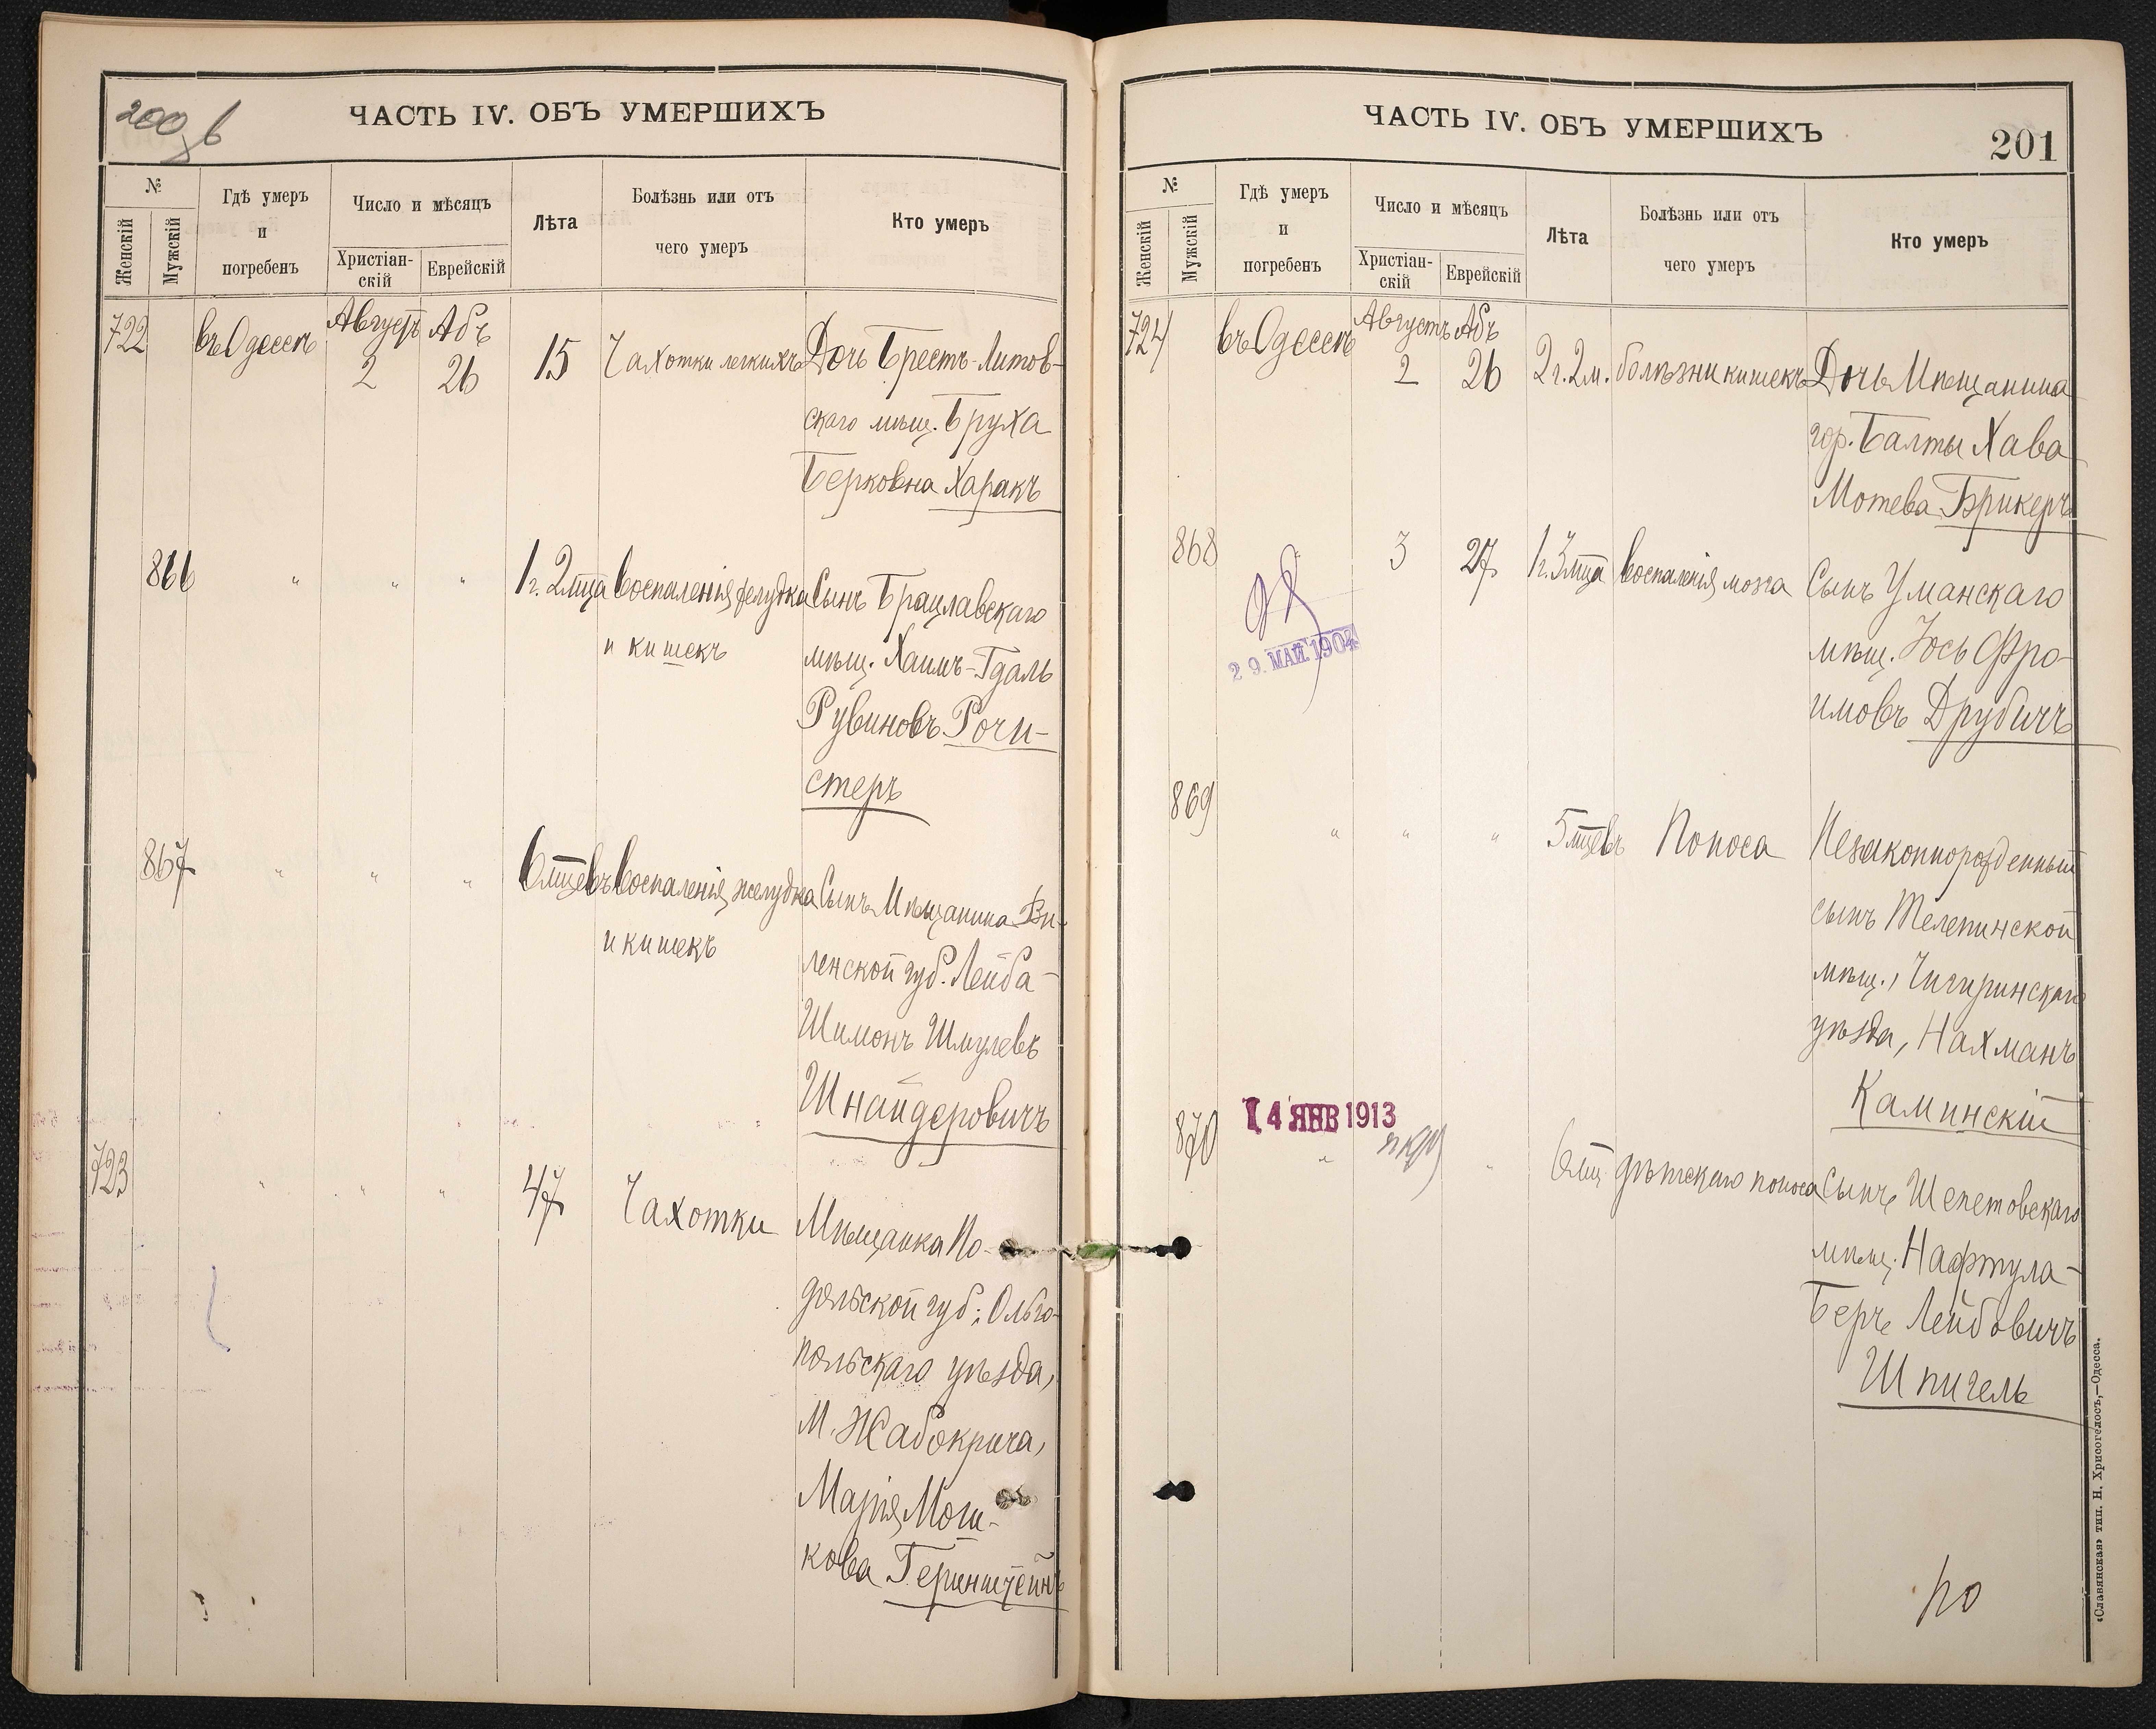 200 об
ЧАСТЬ IV. ОБЪ УМЕРШИХЪ
№
Женскій
Мужскій
Гдѣ умеръ
и
погребенъ
Число и мѣсяцъ
Христіан-
скій
Еврейскій
Лѣта
Болѣзнь или отъ
чего умеръ
Кто умеръ
722 въ Одессѣ Августъ Абъ
2 26 15 Чахотки легкихъ Дочь Брестъ-Литов-
скаго мѣщ. Бруха
Берковна Харакъ
866 " " " 1 г. 2 мца Воспаленія желудка Сынъ Брацлавскаго
и кишекъ мѣщ. Хаимъ-Гдаль
Рувиновъ Рочи-
стеръ
867 " " " 6 мцевъ Воспаленія желудка Сынъ Мѣщанина Ви-
и кишекъ ленской губ. Лейба-
Шимонъ Шмулевъ
Шнайдеровичъ
723 " " " 47 Чахотки Мѣщанка По-
дольской губ; Ольго-
польскаго уѣзда,
М. Жабокрича,
Марія Мош-
кова Геринштейнъ
ЧАСТЬ IV. ОБЪ УМЕРШИХЪ
201
№
Женскій
Мужскій
Гдѣ умеръ
и
погребенъ
Число и мѣсяцъ
Христіан-
скій
Еврейскій
Лѣта
Болѣзнь или отъ
чего умеръ
Кто умеръ
724 въ Одессѣ Августъ Абъ
2 26 2 г. 2 м. болѣзни кишекъ Дочь Мѣщанина
гор. Балты Хава
Мотева Брикеръ
868 " 3 27 1 г. 3 мца Воспаленія мозга Сынъ Уманскаго
мѣщ. Іось Фро-
имовъ Друбичъ
29. МАЙ. 1904
869 " " " 5 мцевъ Поноса Незаконнорожденный
сынъ Телепинской
мѣщ., Чигиринскаго
уѣзда, Нахманъ
Каминскій
14 ЯНВ 1913
870 " " 6 мц дѣтскаго поноса Сынъ Шепетовскаго
мѣщ. Нафтула-
Беръ Лейбовичъ
Шпигель
«Славянская» тип. Н. Хрисогелосъ,—Одесса.